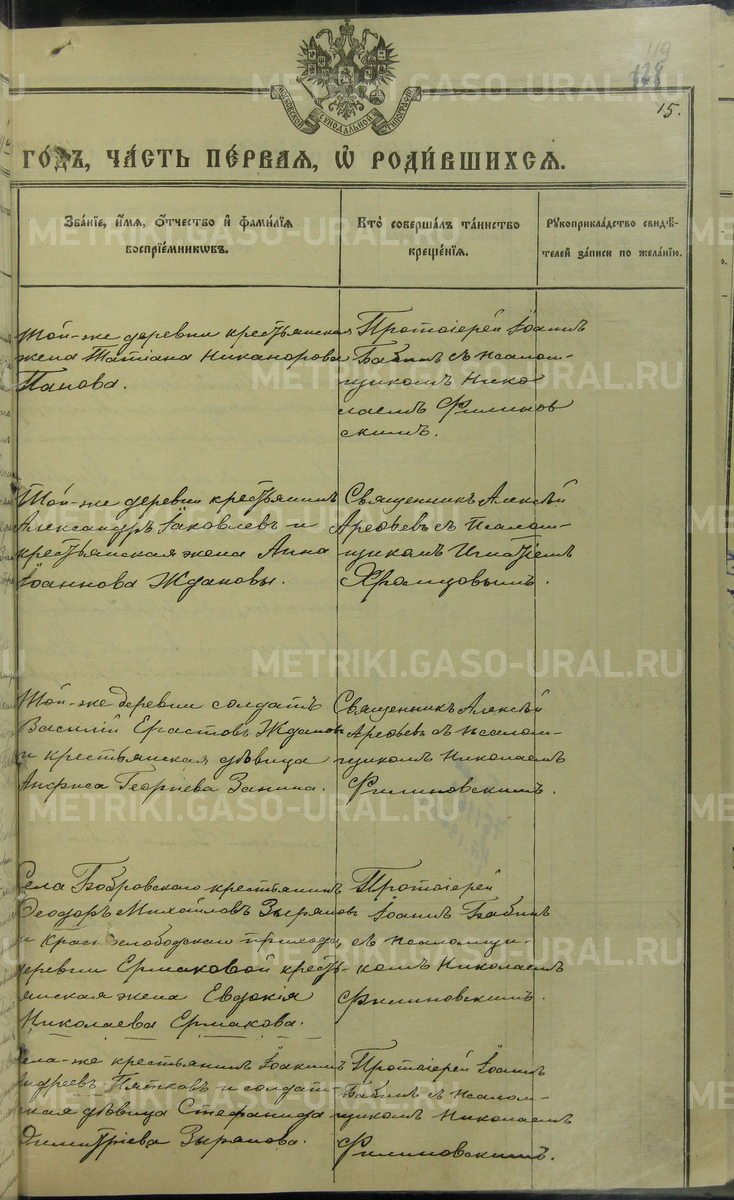 119
128
15.
МОСКОВСКОЙ СѴНОДАЛЬНОЙ ТИПОГРАФІИ
ГО́ДЪ, ЧА́СТЬ ПЕ́РВАЯ, Ѡ҆ РОДИ́ВШИХСЯ.
Зва́нїе, и҆́мѧ, ѻ҆́тчество и҆ фами́лїѧ
воспрїе́мникѡвъ.
Кто̀ соверша́лъ та́инство
креще́нїѧ.
Рꙋкоприкла́дство свидѣ́-
телей за́писи по жела́нїю.
Той-же деревни крестьянская
жена Татіана Никанорова
Папова.
Протоіерей Іоаннъ
Бабинъ съ псалом-
щикомъ Нико
лаемъ Филинов
скимъ.
Той-же деревни крестьянинъ
Александръ Іаковлевъ и
крестьянская жена Анна
Іоаннова Ждановы.
Священникъ Алексѣй
Арефьевъ съ псалом-
щикомъ Игнатіемъ
Храмцовымъ.
Той-же деревни солдатъ
Василій Ерастовъ Ждановъ
и крестьянская дѣвица
Анфиса Георгіева Занина.
Священникъ Алексѣй
Арефьевъ съ псалом-
щикомъ Николаемъ
Филиновскимъ.
Села Бобровскаго крестьянинъ
Ѳеодоръ Михайловъ Зыряновъ
и Краснослободскаго прихода,
деревни Ермаковой кресть-
янская жена Евдокія
Николаева Ермакова.
Протоіерей
Іоаннъ Бабинъ
съ псаломщи-
комъ Николаемъ
Филиновскимъ.
Села-же крестьянинъ Іоакимъ
Андреевъ Пятковъ и солдат-
ская дѣвица Стефанида
Димитріева Зырянова.
Протоіерей Іоаннъ
Бабинъ съ псалом-
щикомъ Николаемъ
Филиновскимъ.
METRIKI.GASO-URAL.RU
METRIKI.GASO-URAL.RU
METRIKI.GASO-URAL.RU
METRIKI.GASO-URAL.RU
METRIKI.GASO-URAL.RU
METRIKI.GASO-URAL.RU
METRIKI.GASO-URAL.RU
METRIKI.GASO-URAL.RU